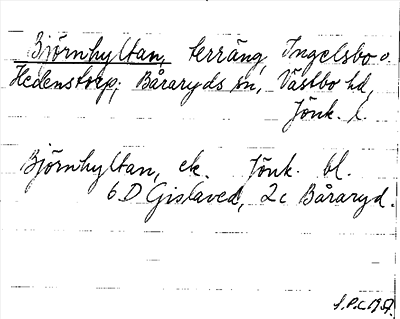 Björnhyltan, terräng, Ingelsbo o.
Hedenstorp, Båraryds sn, Västbo hd,
Jönk. l.
Björnhyltan, ek. Jönk. bl.
6 D Gislaved, 2c Båraryd.